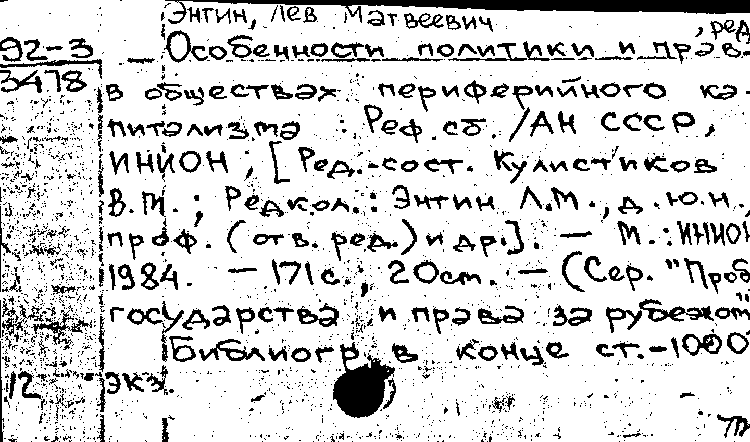 Энтин, Лев Матвеевич
, ред
92-3 — Особенности политики и прав-
3478 в обществах периферийного ка-
питализма : Реф. сб. / АН СССР,
ИНИОН ; [Ред.-сост. Кулистиков
В.М. ; Редкол.: Энтин Л.М., д.ю.н.,
проф. (отв. ред.) и др.]. — М. : ИНИОН
1984. — 171 с. ; 20 cm. — (Сер. "Проб
государства и права за рубежом"
Библиогр. в конце ст. - 1000
12 экз.